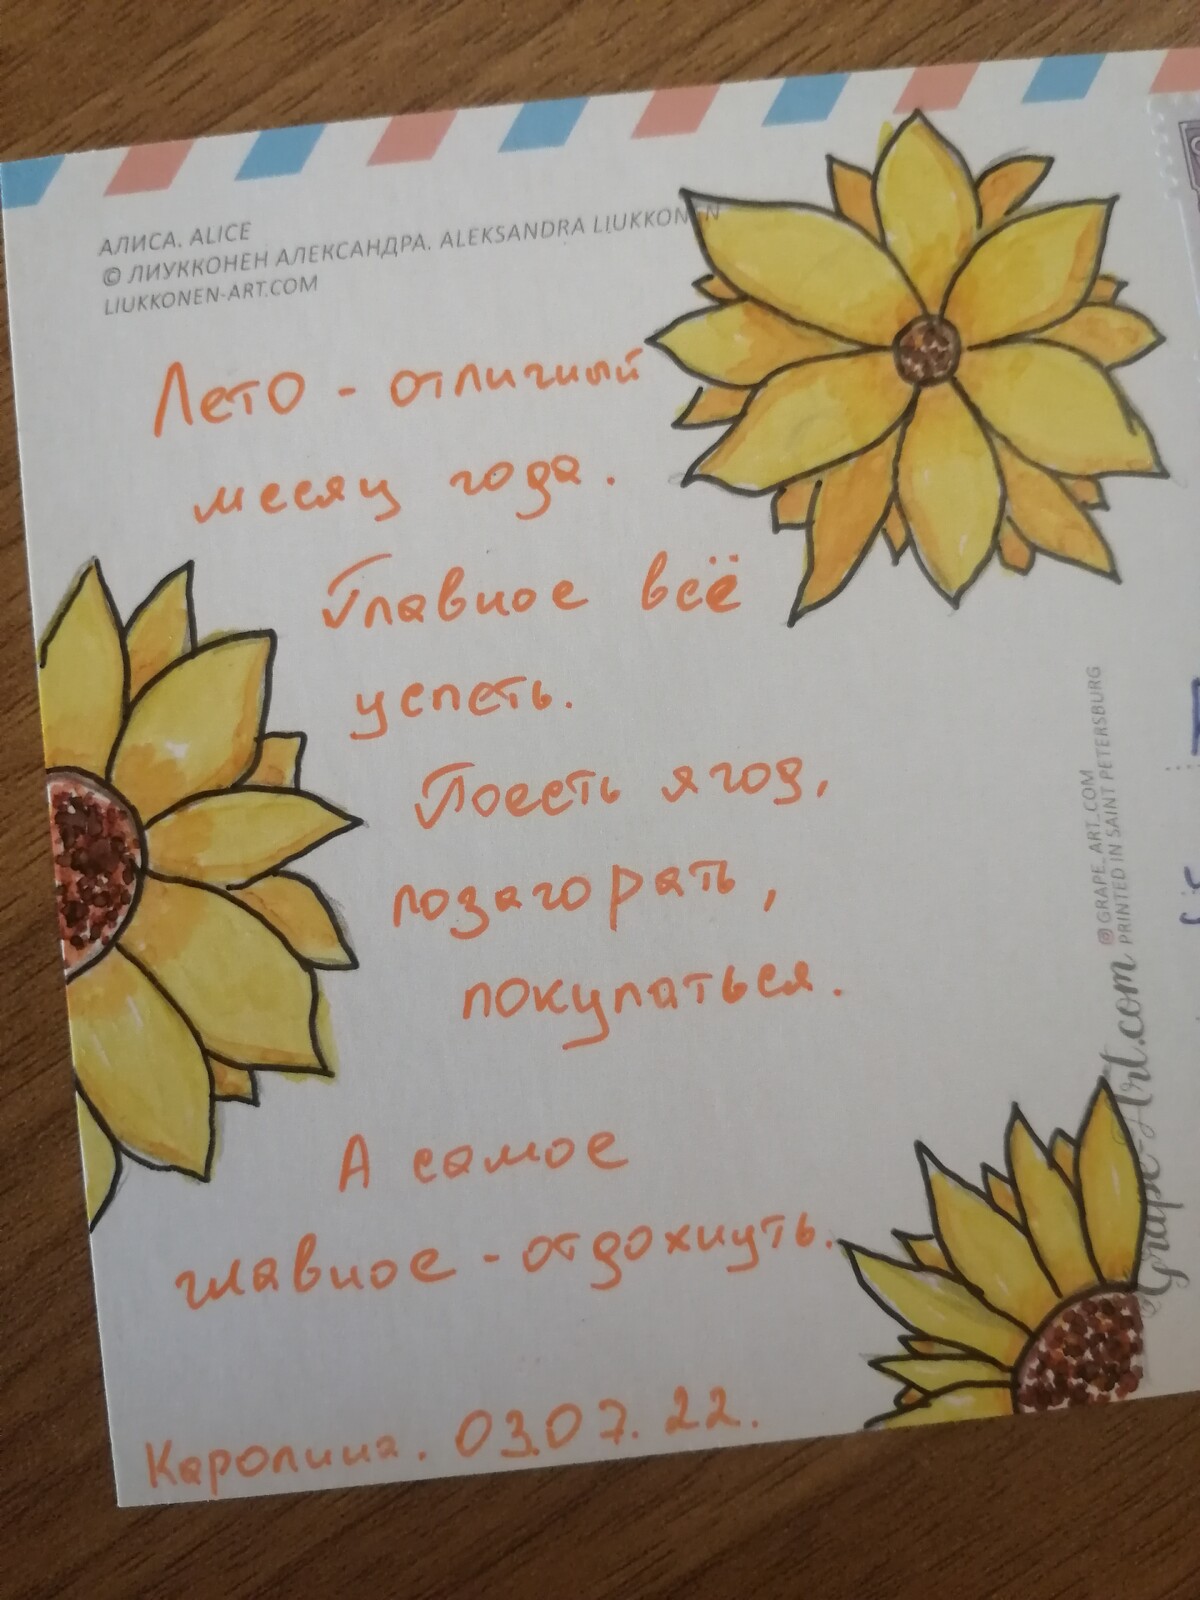 АЛИСА. ALICE
© ЛИУККОНЕН АЛЕКСАНДРА. ALEKSANDRA LIUKKONEN
LIUKKONEN-ART.COM
Лето - отличный
месяц года.
Главное всё
успеть.
Поесть ягод,
позагорать,
покупаться.
А самое
главное - отдохнуть.
Каролина. 03.07.22.
@GRAPE_ART.COM
PRINTED IN SAINT PETERSBURG
Grape-Art.com